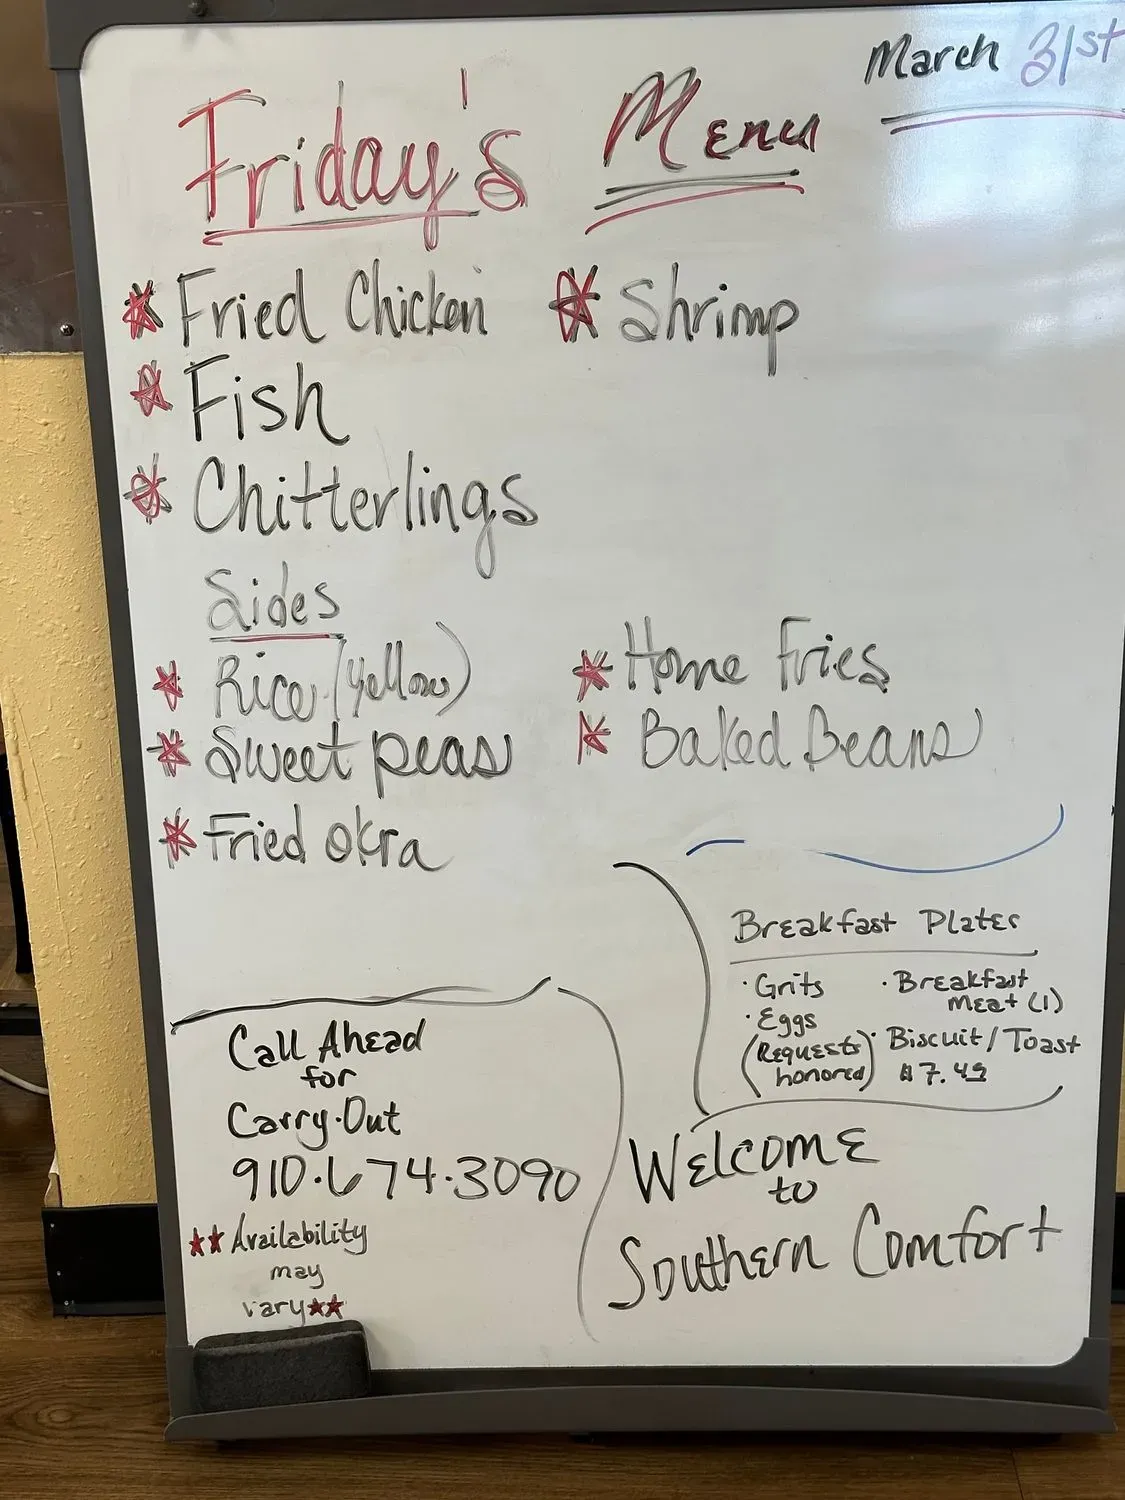 March 31st
Friday's Menu
* Fried Chicken * Shrimp
* Fish
* Chitterlings
Sides
* Rice (yellow) * Home Fries
* Sweet peas * Baked Beans
* Fried okra
Breakfast Plates
· Grits · Breakfast
Meat (1)
· Eggs
(Requests honored) · Biscuit / Toast
$7.49
Call Ahead
for
Carry-Out
910·674·3090
**Availability
may
vary**
Welcome
to
Southern Comfort